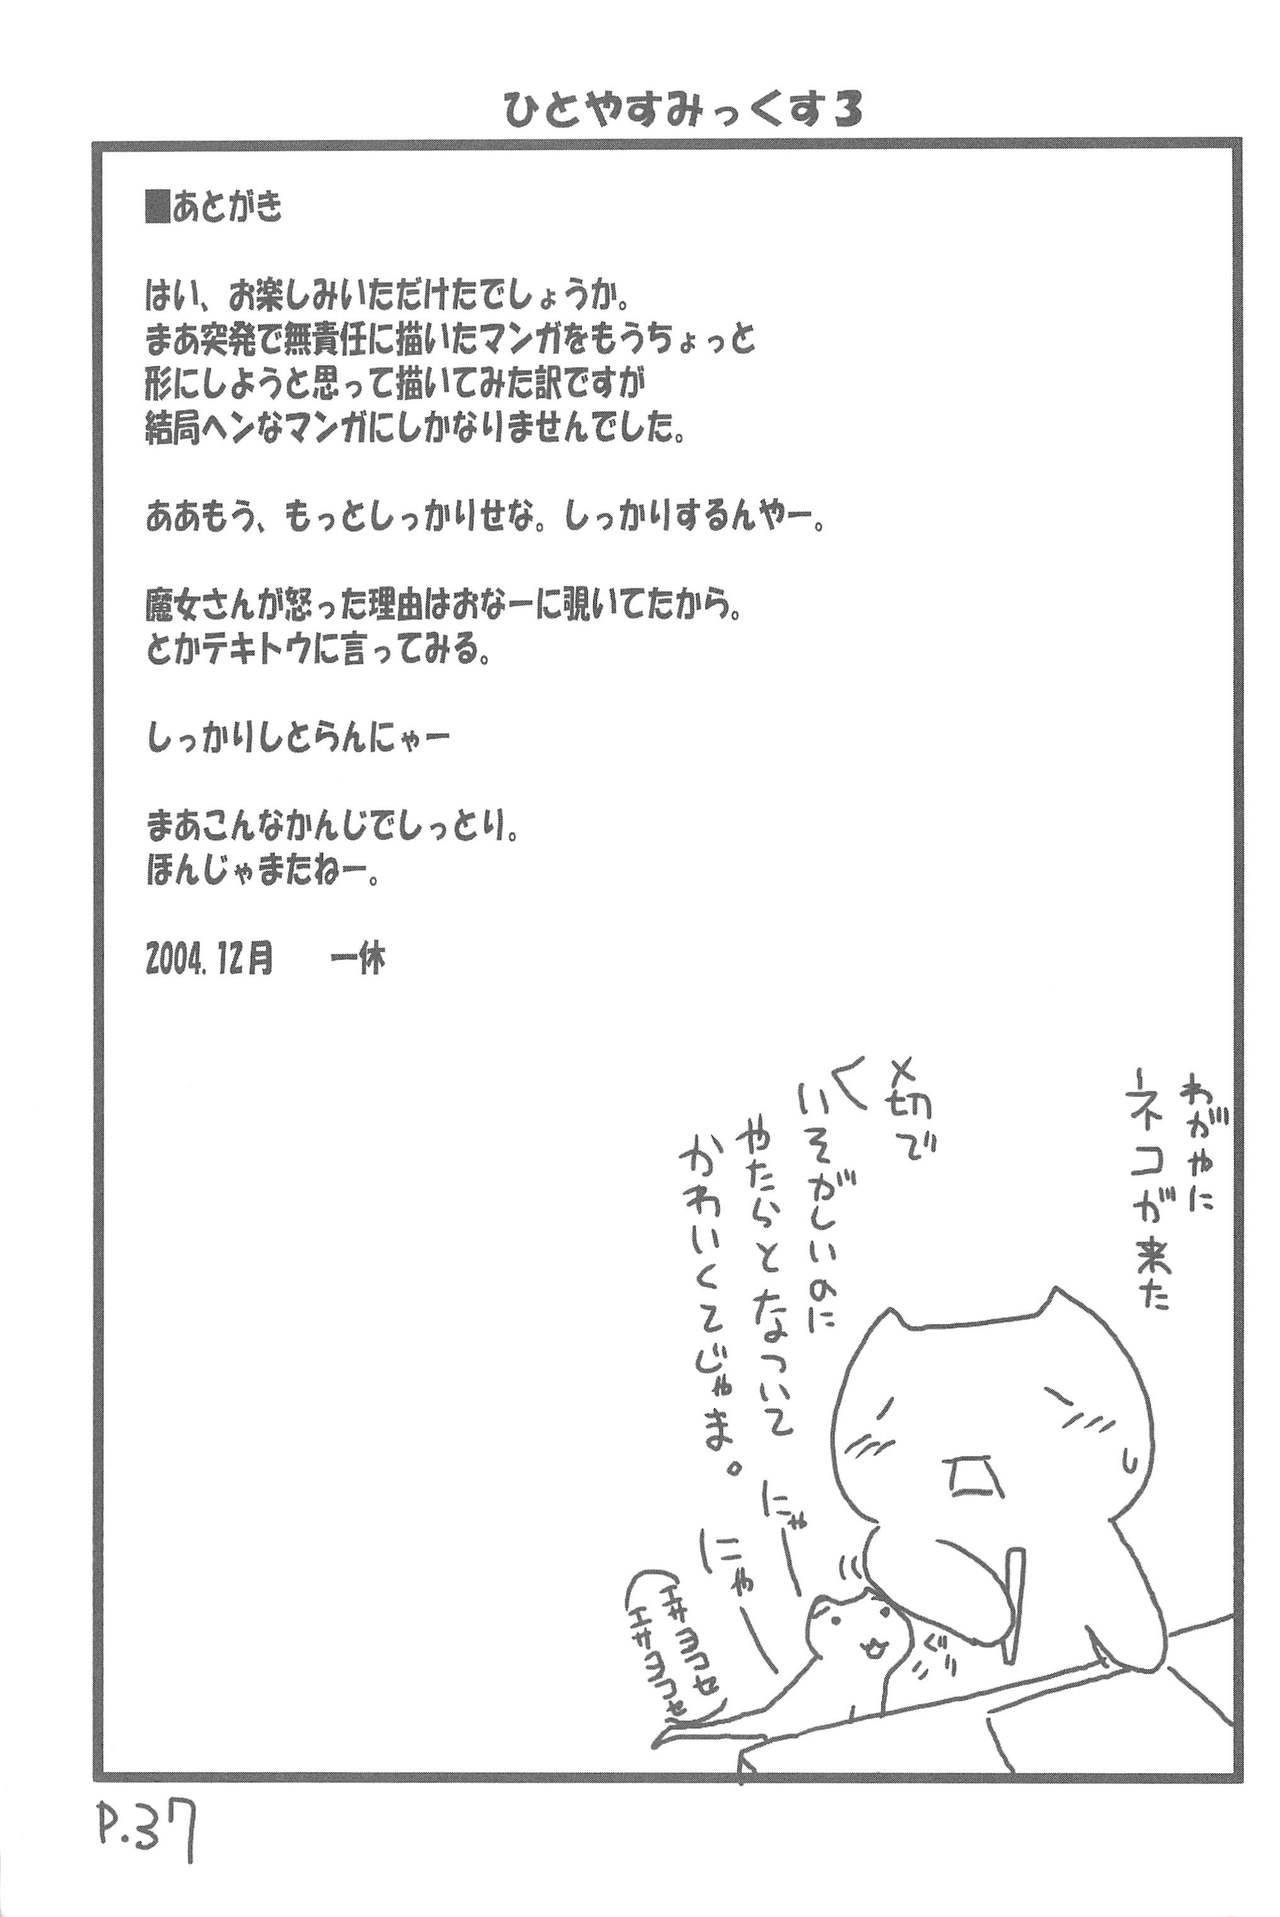 ひとやすみっくす3
■あとがき
はい、お楽しみいただけたでしょうか。
まあ突発で無責任に描いたマンガをもうちょっと
形にしようと思って描いてみた訳ですが
結局ヘンなマンガにしかなりませんでした。
ああもう、もっとしっかりせな。しっかりするんやー。
魔女さんが怒った理由はおなーに覗いてたから。
とかテキトウに言ってみる。
しっかりしとらんにゃー
まあこんなかんじでしっとり。
ほんじゃまたねー。
2004.12月　　一休
わがやに
ネコが来た
〆切で
いそがしいのに
やたらとなついて
かわいくてじゃま。
にゃ
にゃ
エサヨコセ
エサヨコセ
ぐ
P.37